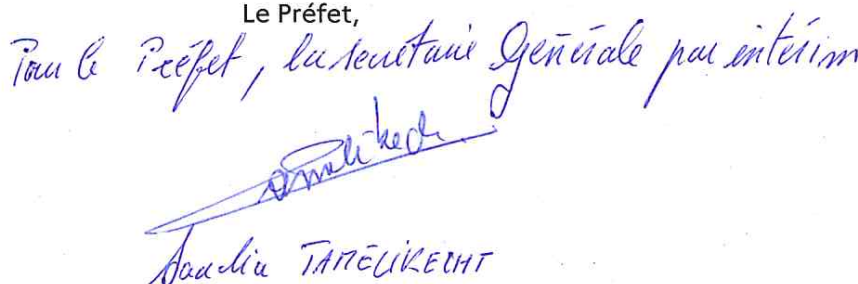 Le Préfet,
Pour le Préfet, la secrétaire Générale par intérim
TAMELIKECHT